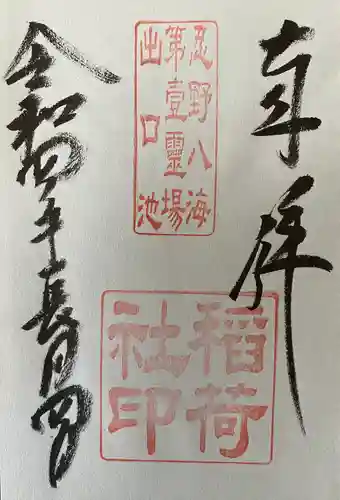 奉拝
忍野八海
第壹靈場
出口池
稲荷
社印
令和四年長月